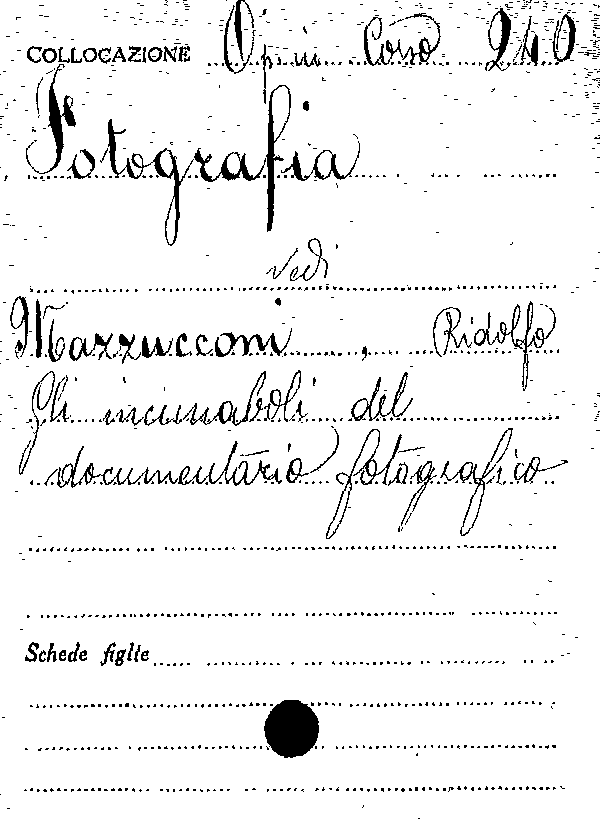 COLLOCAZIONE Op. in Corso 240
Fotografia
vedi
Mazzucconi, Ridolfo
Gli incunaboli del
documentario fotografico
Schede figlie